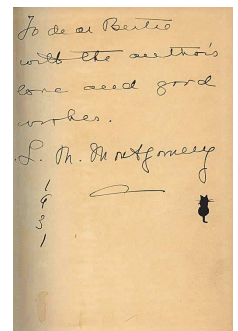 To dear Bertie
with the author's
love and good
wishes.
L. M. Montgomery
1
9
3
1